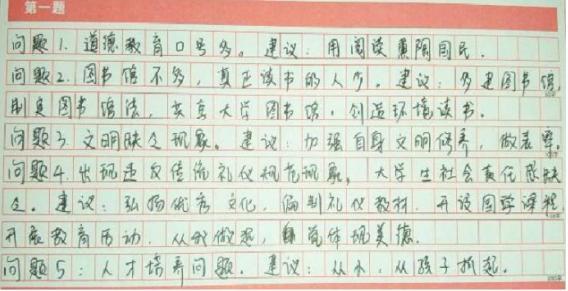 第一题
问题1. 道德教育口号多。建议：用阅读熏陶国民.
问题2. 图书馆不多，真正读书的人少。建议：多建图书馆,
制定图书馆法，共享大学图书馆，创造环境读书。
问题3. 文明缺乏现象。建议：加强自身文明修养，做表率.
问题4. 出现违反传统礼仪规范现象，大学生社会责任感缺
乏。建议：弘扬优秀文化，编制礼仪教材，开设国学课程,
开展教育活动，从我做起，体现美德.
问题5：人才培养问题。建议：从小，从孩子抓起。